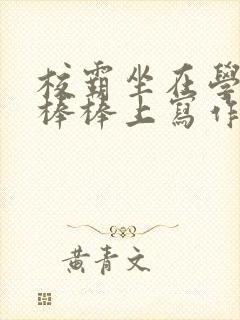 校霸坐在學
棒棒上寫作
黃青文